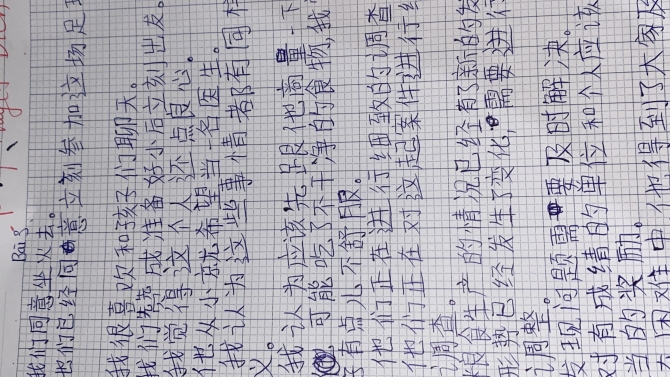 Bài 3
我们同意坐火去。
他们已经同意立刻参加这场足球
我很喜欢和孩子们聊天。
我们赞成准备好小后立刻出发。
我觉得这个人还点良心。
他从小就希望当一名医生。
我认为这些事情都有同样
义。
我认为应该先跟他商量一下
可能吃了不干净的食物,我
了有点儿不舒服。
他们正在进行细致的调查
他们正在对这起案件进行
调查。
粮食生产的情况已经有了新的发
形势已经发生了变化,需要进行
调整。
发现问题需要及时解决。
对有成绩的单位和个人应该
当的奖励。
困难中他得到了大家